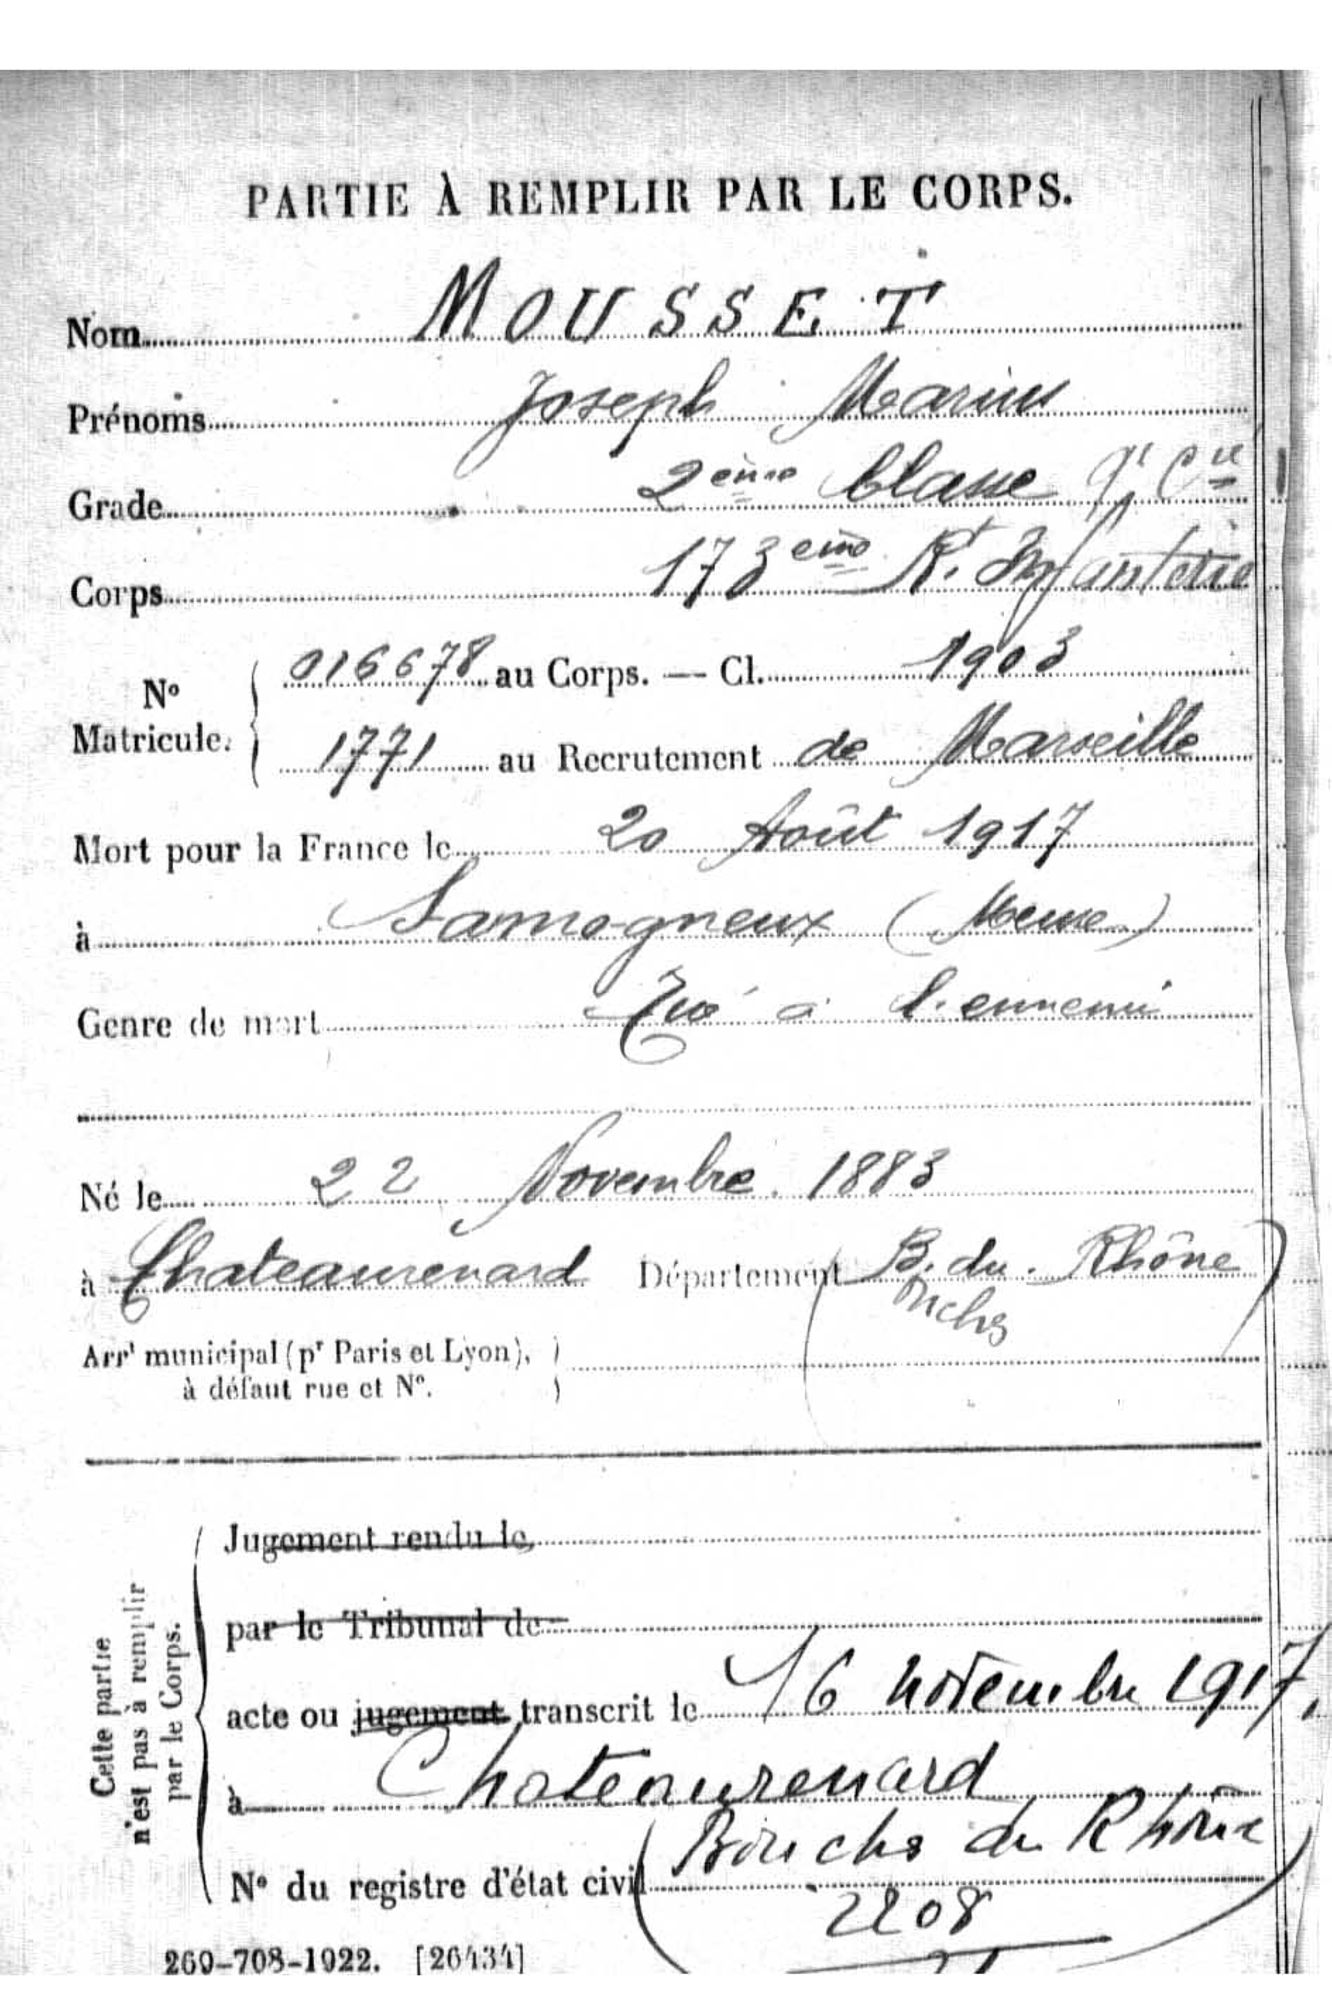 PARTIE À REMPLIR PAR LE CORPS.
Nom MOUSSET
Prénoms Joseph Marius
Grade 2ème Classe 9e Cie
Corps 173eme Rt. Infanterie
No Matricule. 016678 au Corps. — Cl. 1903
1771 au Recrutement de Marseille
Mort pour la France le 20 Août 1917
à Samogneux (Meuse)
Genre de mort Tué à l'ennemi
Né le 22 Novembre 1883
à Chateaurenard Département (B. du Rhône)
ouches
Arrt municipal (pr Paris et Lyon),
à défaut rue et No.
Cette partie
n'est pas à remplir
par le Corps.
Jugement rendu le,
par le Tribunal de
acte ou jugement transcrit le 16 novembre 1917,
à Chateaurenard
No du registre d'état civil (Bouches du Rhône)
2208
269-708-1922. [26434]